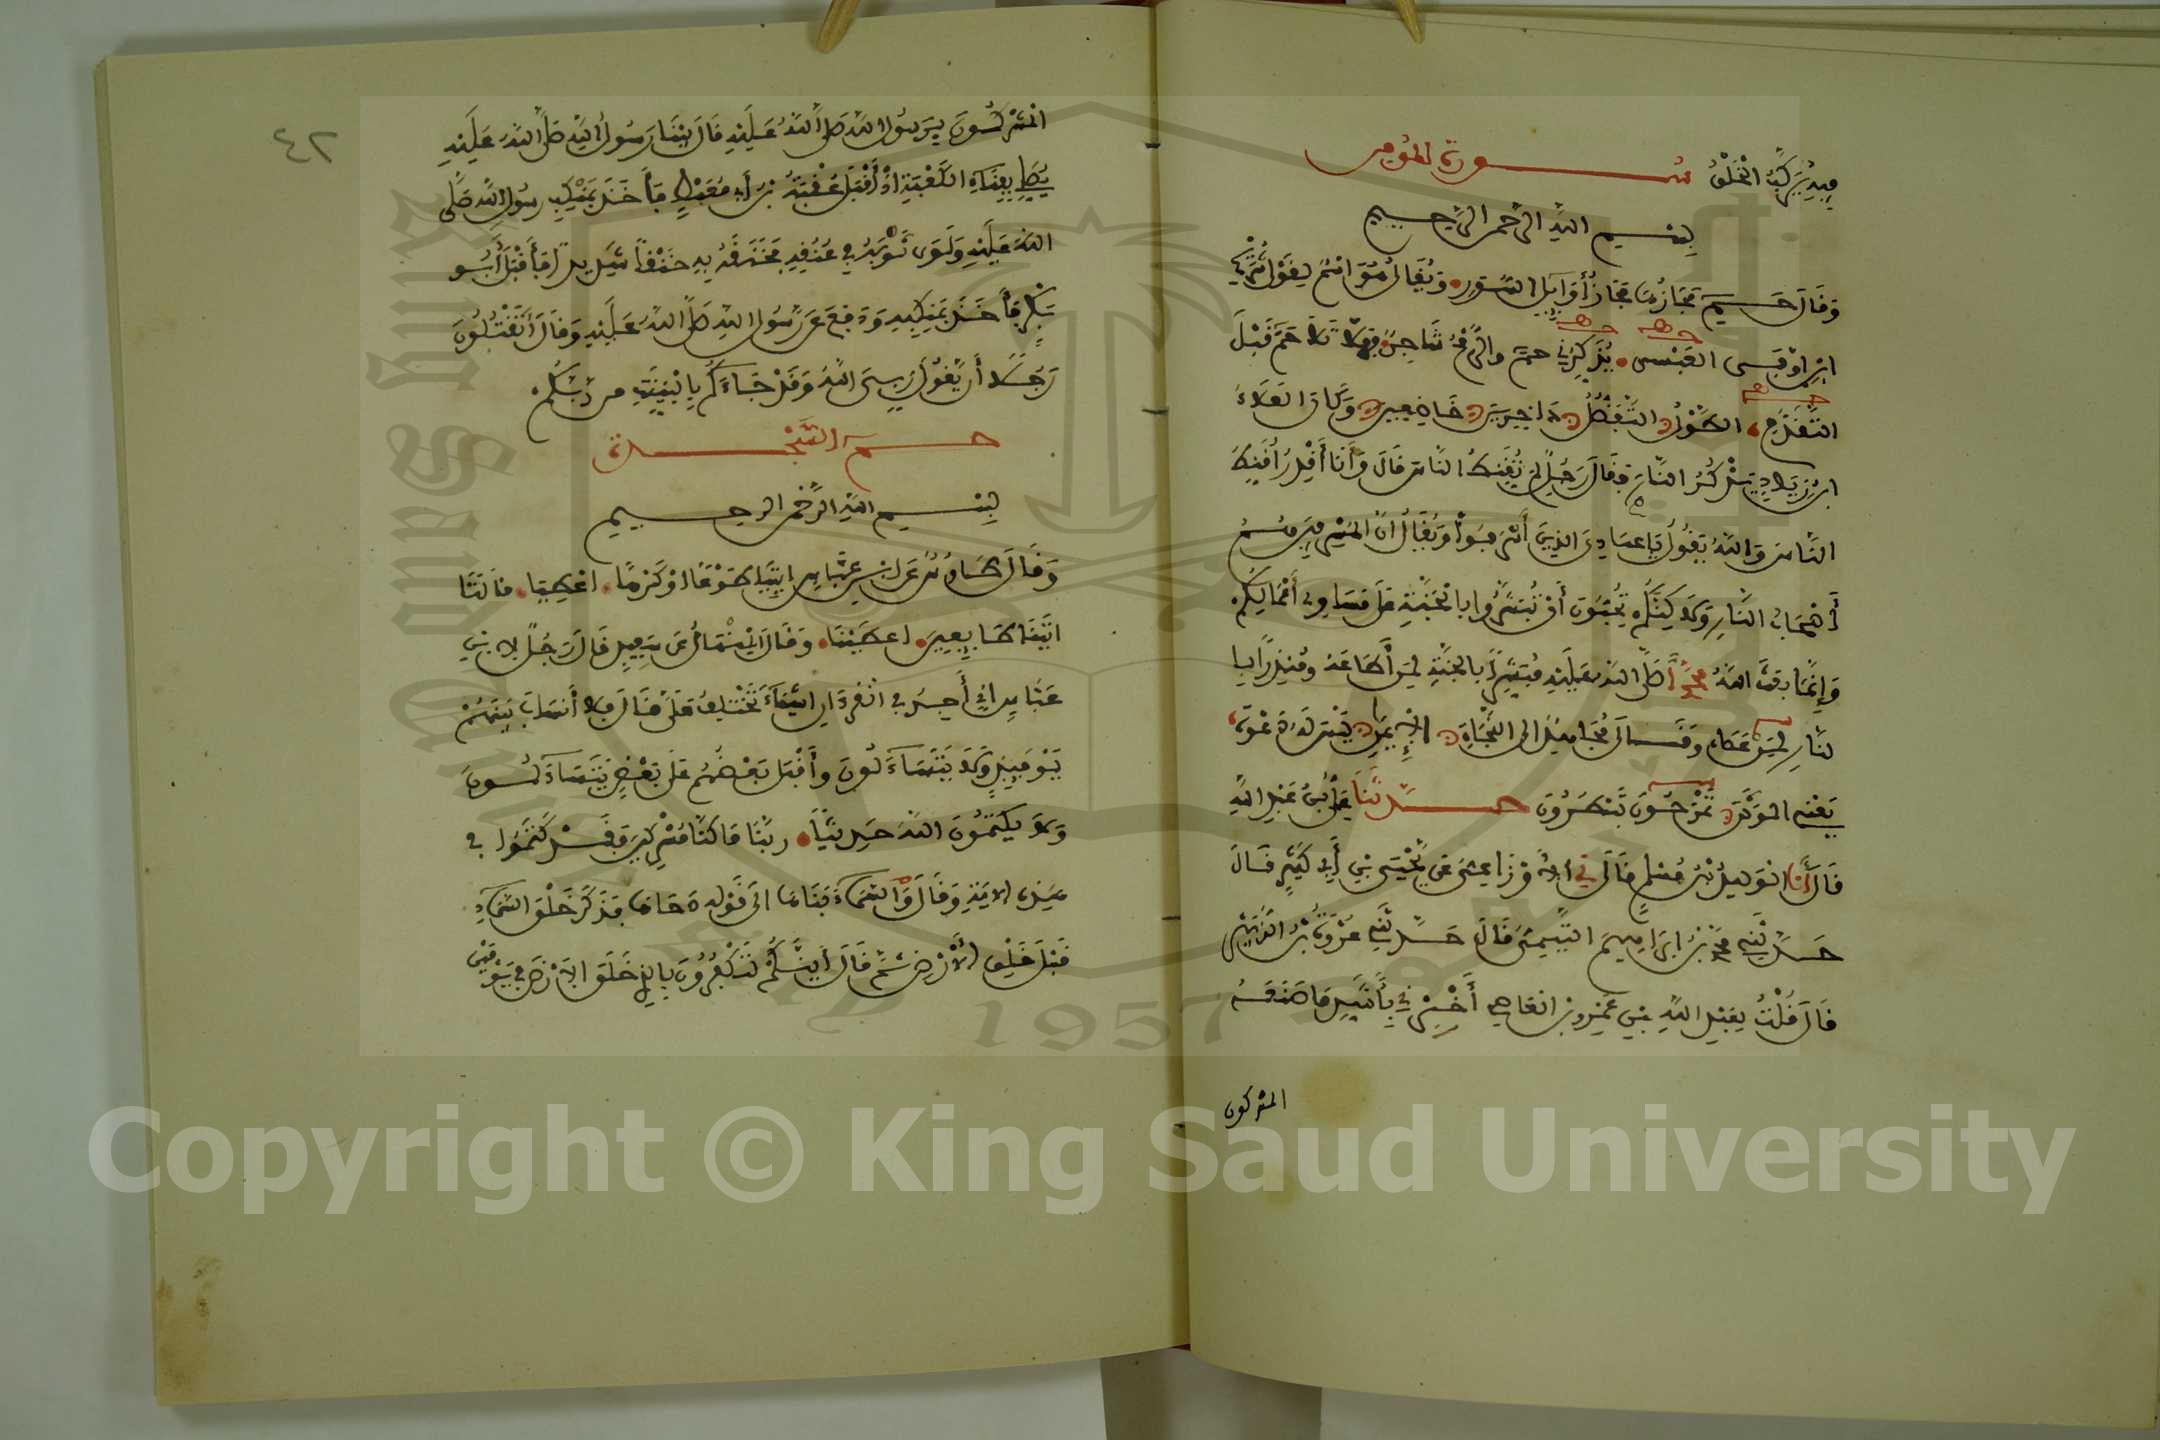 فيه يركب الخلق سورة المومن
بسم الله الرحمن الرحيم
وقال حم مجازها مجاز أوايل السور ويقال هو اسم لقول شريح
ابن أوفى العبسي يذكرني حم والرمح شاجر فهلا تلا حم قبل
التقدم الطول التفضل داخرين خاضعين وكان العلاء
ابن زياد يذكر النار فقال رجل لم تقنط الناس قال وأنا أقدر أقنط
الناس والله يقول ياعبادي الذين أسرفوا ويقال ان المسرفين هم
أصحاب النار ولكنكم تحبون أن تبشروا بالجنة على مساوي أعمالكم
وإنما بعث الله محمدا صلى الله عليه مبشرا بالجنة لمن أطاعه ومنذرا با
لنار لمن عصاه وقال مجاهد إلى النجاة الإيمان ليس له دعوة
يعني الوثن تمرحون تبطرون حدثنا علي بن عبد الله
قال نا الوليد بن مسلم قال ني الأوزاعي عن يحيى بن أبي كثير قال
حدثني محمد بن إبراهيم التيمي قال حدثني عروة بن الزبير
قال قلت لعبد الله بن عمرو بن العاصي أخبرني بأشد ما صنعه
المشركون
٤٢
المشركون برسول الله صلى الله عليه قال بينا رسول الله صلى الله عليه
يصلي بفناء الكعبة إذ أقبل عقبة بن أبي معيط فأخذ بمنكب رسول الله صلى
الله عليه ولوى ثوبه في عنقه فخنقه به خنقا شديدا فأقبل أبو
بكر فأخذ بمنكبه ودفع عن رسول الله صلى الله عليه وقال أتقتلون
رجلا أن يقول ربي الله وقد جاءكم بالبينات من ربكم
حم السجدة
بسم الله الرحمن الرحيم
وقال طاوس عن ابن عباس ايتيا طوعا أو كرها اعطيا قالتا
اتينا طايعين اعطينا وقال المنهال عن سعيد قال رجل لابن
عباس إني أجد في القرءان أشياء تختلف علي قال فلا أنساب بينهم
يوميذ ولا يتساءلون وأقبل بعضهم على بعض يتساءلون
ولا يكتمون الله حديثا ربنا ما كنا مشركين فقد كتموا في
هذه الاية وقال والسماء بناها الى قوله دحاها فذكر خلق السماء
قبل خلق الأرض ثم قال أينكم لتكفرون بالذي خلق الأرض في يومين